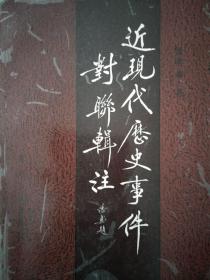 近現代歷史事件
對聯輯注